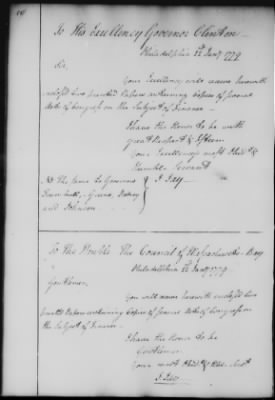 To His Excellency Governor Clinton
Philadelphia 12 Jany 1779
Sir,
Your Excellency will receive herewith
enclosed two printed Papers containing Copies of several
Acts of Congress on the Subject of Finance
I have the Honor to be with
great Respect & Esteem
Your Excellency's most Obedt &
Humble Servant
J. Jay
& the Same to Governors
Trumbull, Greene, Henry
and Johnson
To The Honble The Council of Massachusetts Bay
Philadelphia 12 Jany 1779
Gentlemen,
You will receive herewith enclosed two
printed Papers containing Copies of several Acts of Congress on
the Subject of Finance
I have the Honor to be
Gentlemen
Your most Obedt & Hble Servt
J. Jay